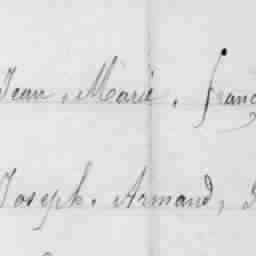 Jean, Marie, franç
Joseph, Armand,